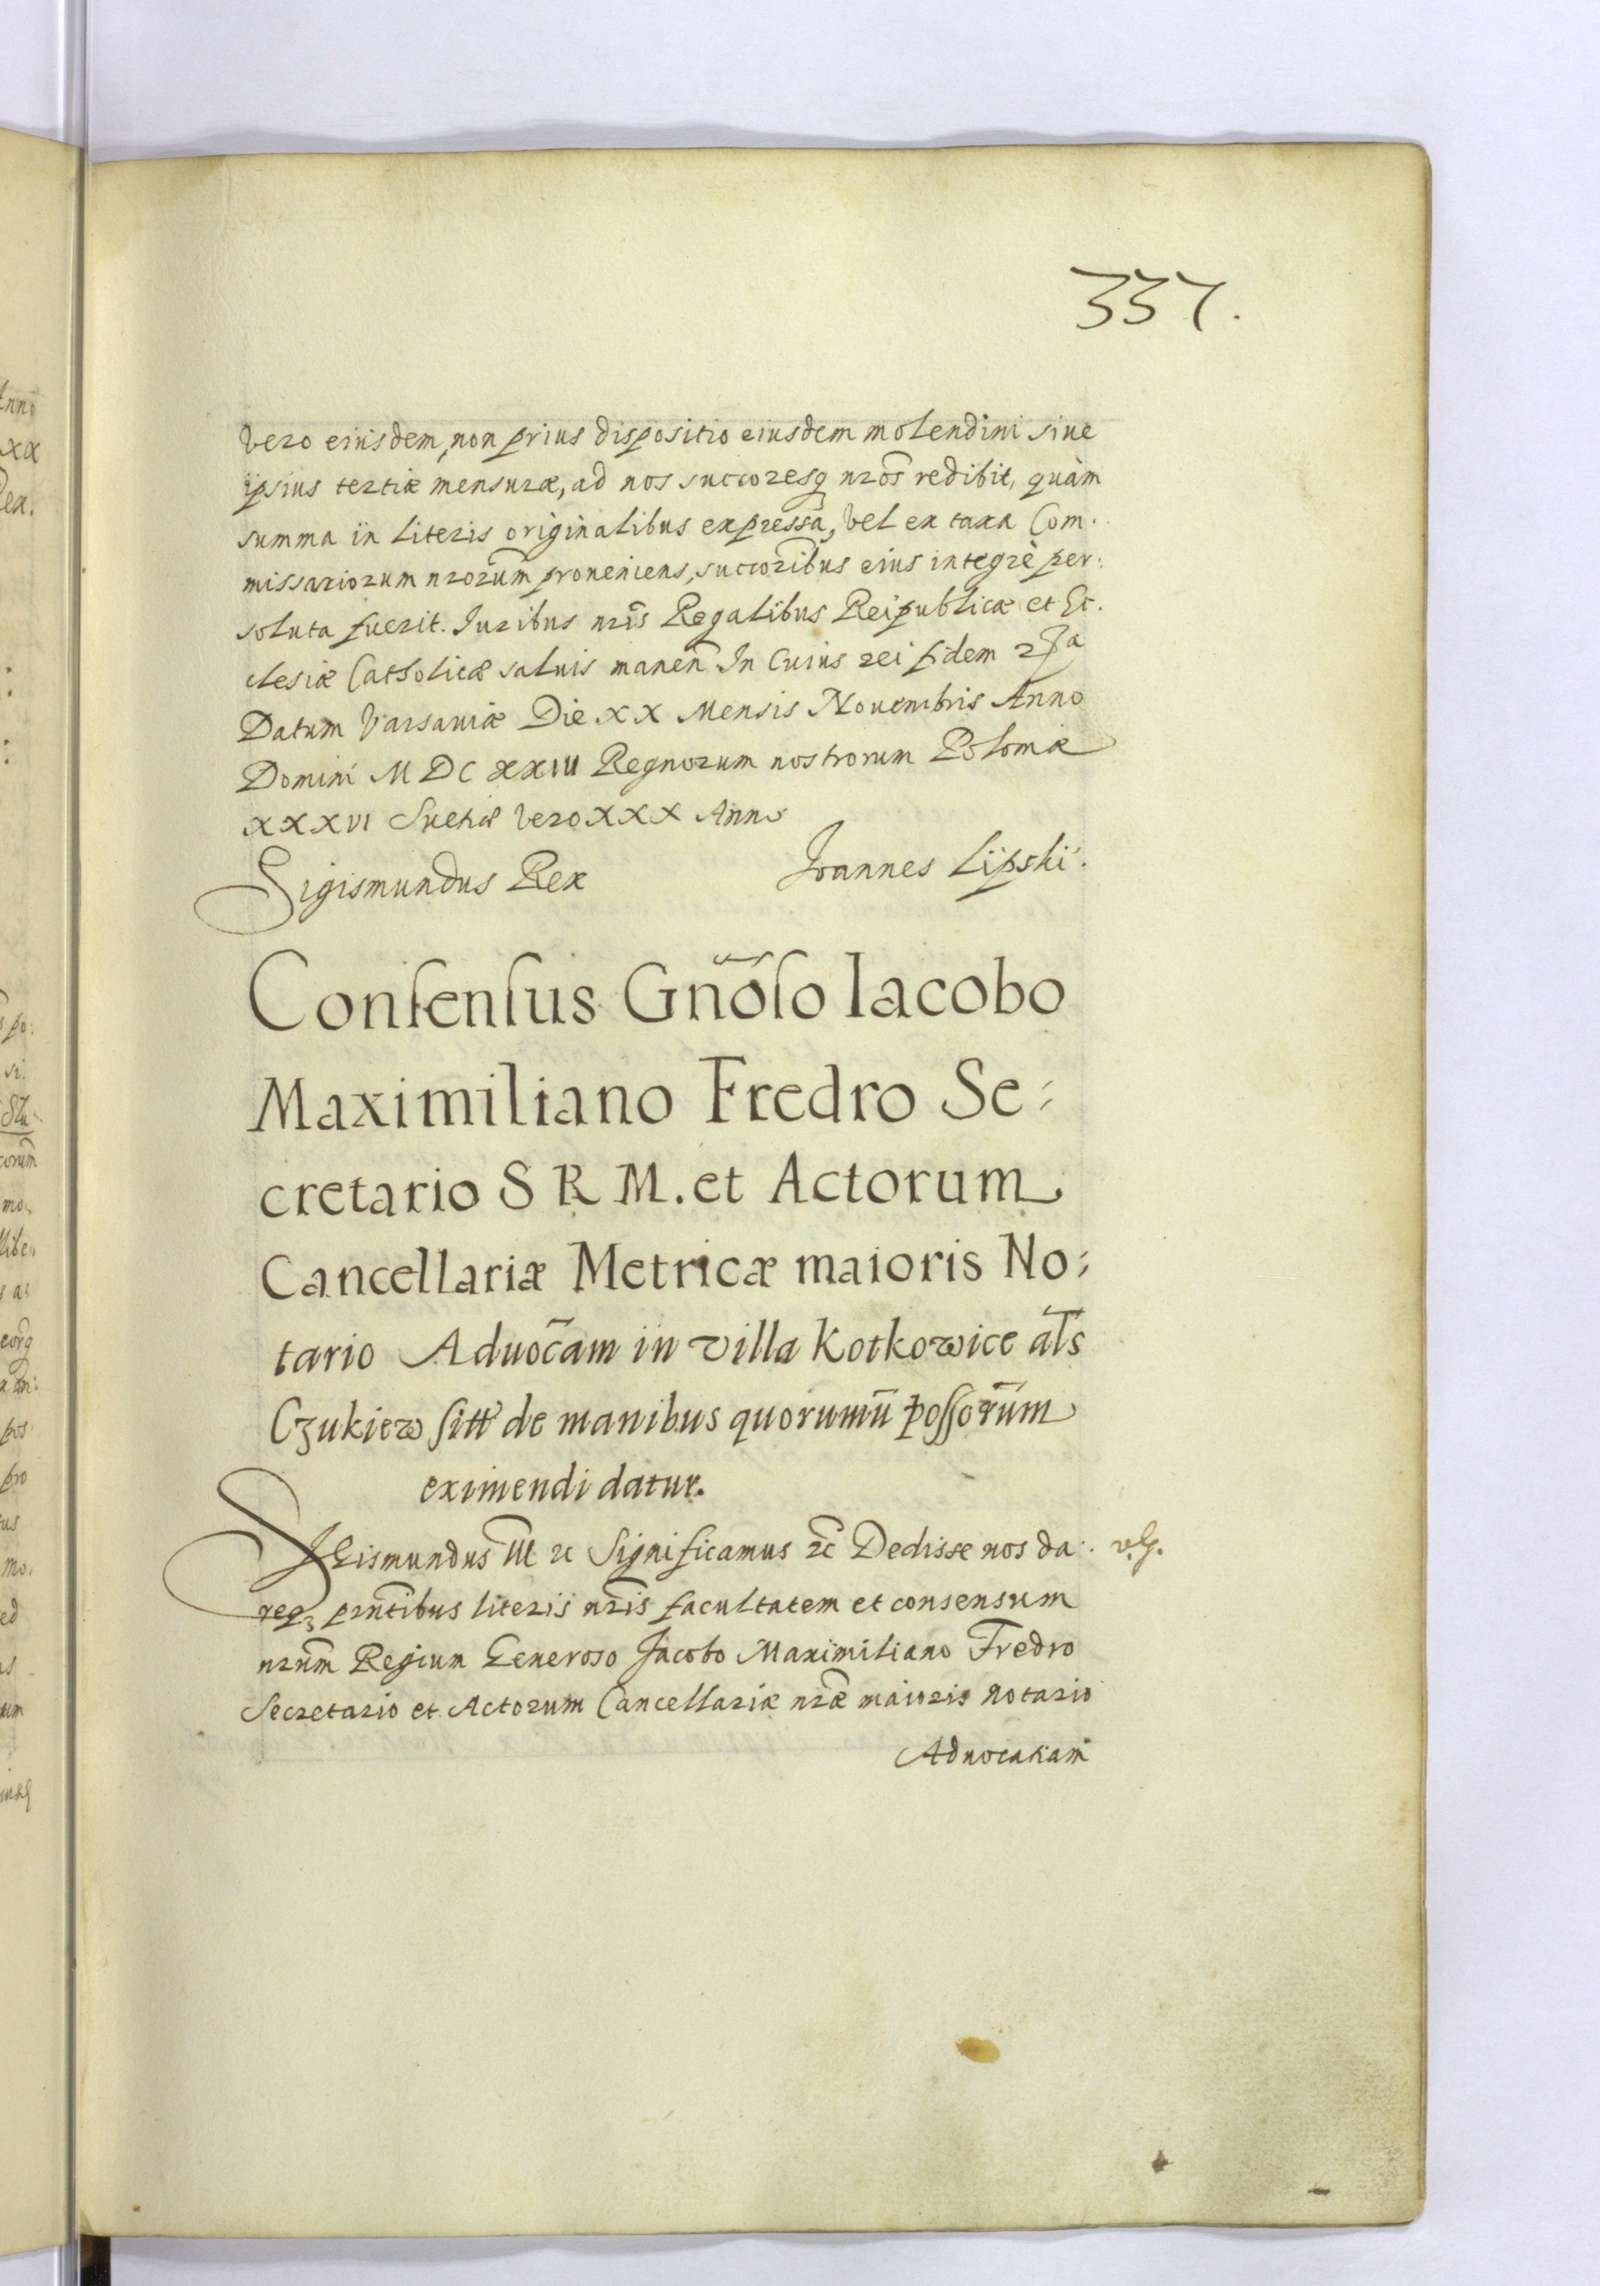 337.
vero eiusdem, non prius dispositio eiusdem molendini siue
ipsius tertiæ mensuræ, ad nos succoresq nr̃os redibit, quàm
summa in literis originalibus expressa, vel ex taxa Com.
missariorum nrorum̃ proueniens, succorib̃us eius integrè per:
soluta fuerit. Iuribus nrĩs Regalibus Reipublicæ et Ec.
clesiæ Catholicæ saluis maneñ In Cuius rei fidem
Datum Varsauiæ Die XX Mensis Nouembris Anno
Domini M DC XXIII Regnorum nostrorum Poloniæ
XXXVI Suetiæ vero XXX Anno
Sigismundus Rex Joannes Lipski.
Conſenſus Gnõſo Iacobo
Maximiliano Fredro Se:
cretario S R M. et Actorum
Cancellariæ Metricæ maioris No:
tario Aduoc̃am in villa Kotkowice al̃s
Czukiew ſitt de manibus quorumũ poſſorũm
eximendi datur.
SIGismundus III ꝛc Significamus ꝛc Dedisse nos da:
req; prñtibus literis nrĩs facultatem et consensum
nrũm Regium Generoso Jacobo Maximiliano Fredro
Secretario et Actorum Cancellariæ nræ̃ maioris Notario
Aduocatiam